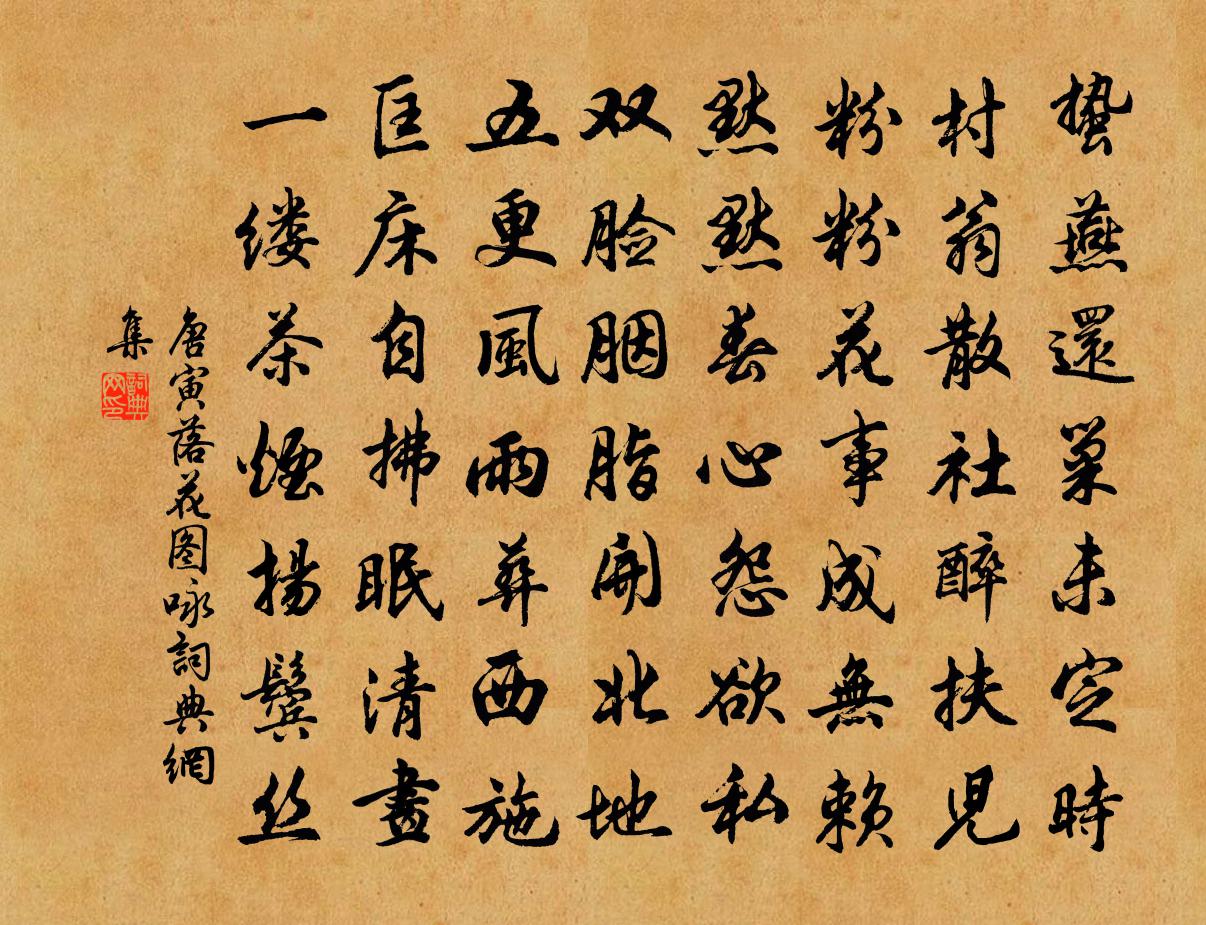 蛰燕還巢未定時
村翁散社醉扶児
粉粉花事成無赖
默默春心怨欲私
双脸胭脂開北地
五更風雨葬西施
匡床自拂眠清晝
一缕茶煙揚鬓丝
唐寅落花图咏詞典網
集
詞典网印